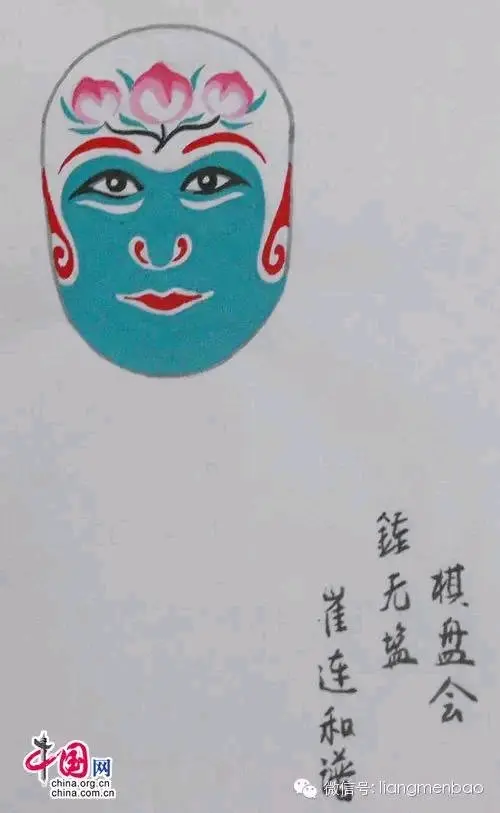 棋盘会
鍾无塩
崔连和谱
中国网
china.org.cn
china.com.cn
微信号: liangmenbao